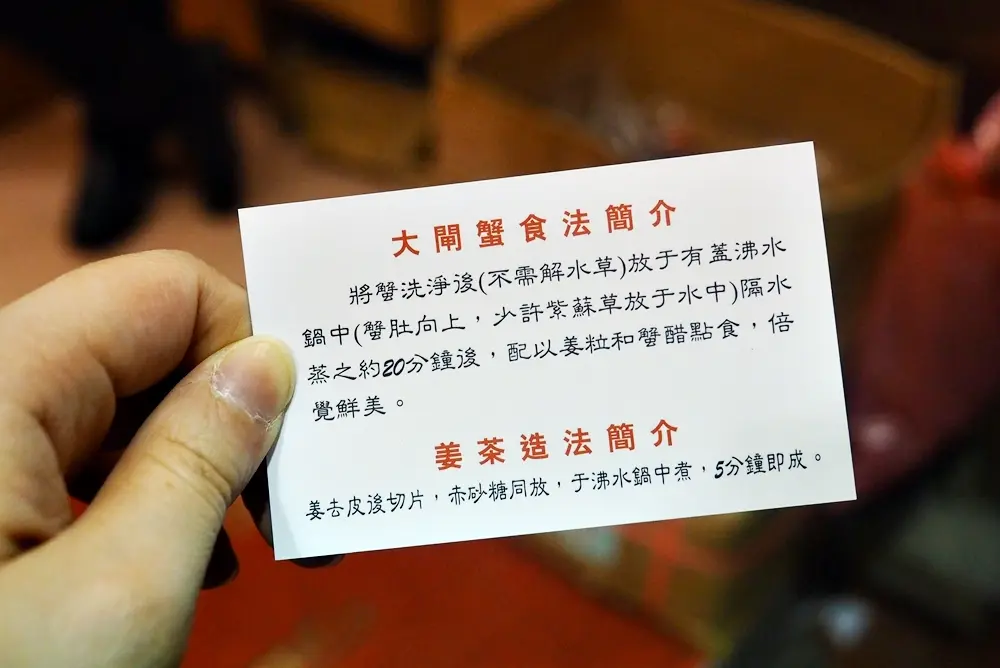 大閘蟹食法簡介
將蟹洗淨後(不需解水草)放于有蓋沸水
鍋中(蟹肚向上，少許紫蘇草放于水中)隔水
蒸之約20分鐘後，配以姜粒和蟹醋點食，倍
覺鮮美。
姜茶造法簡介
姜去皮後切片，赤砂糖同放，于沸水鍋中煮，5分鐘即成。